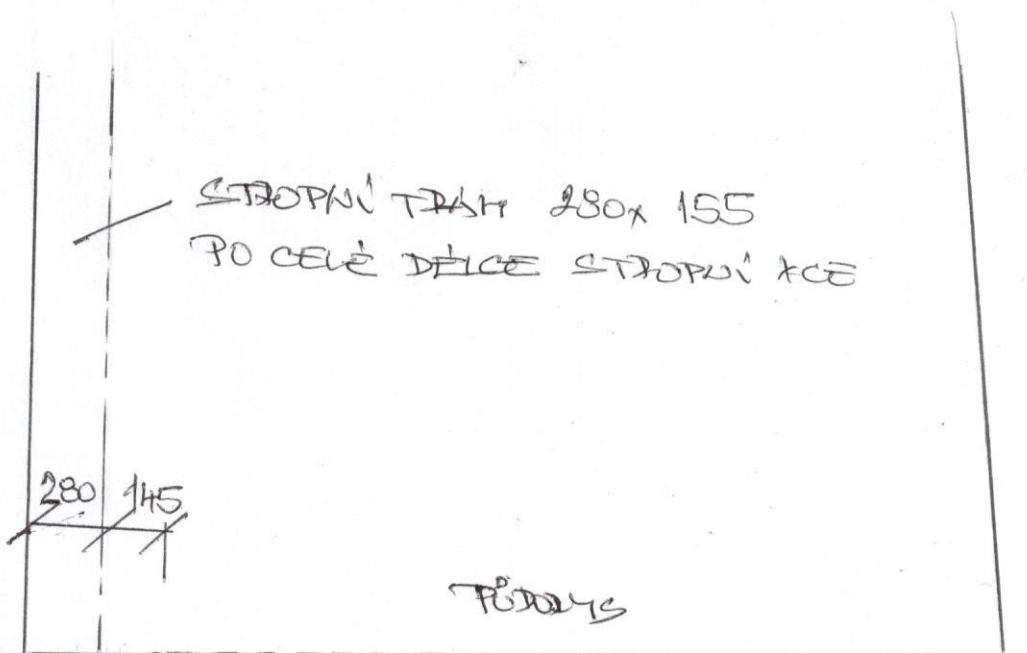 STROPNÍ TRÁM 280x 155
PO CELÉ DÉLCE STROPNÍ KCE
280 145
PŮDORYS